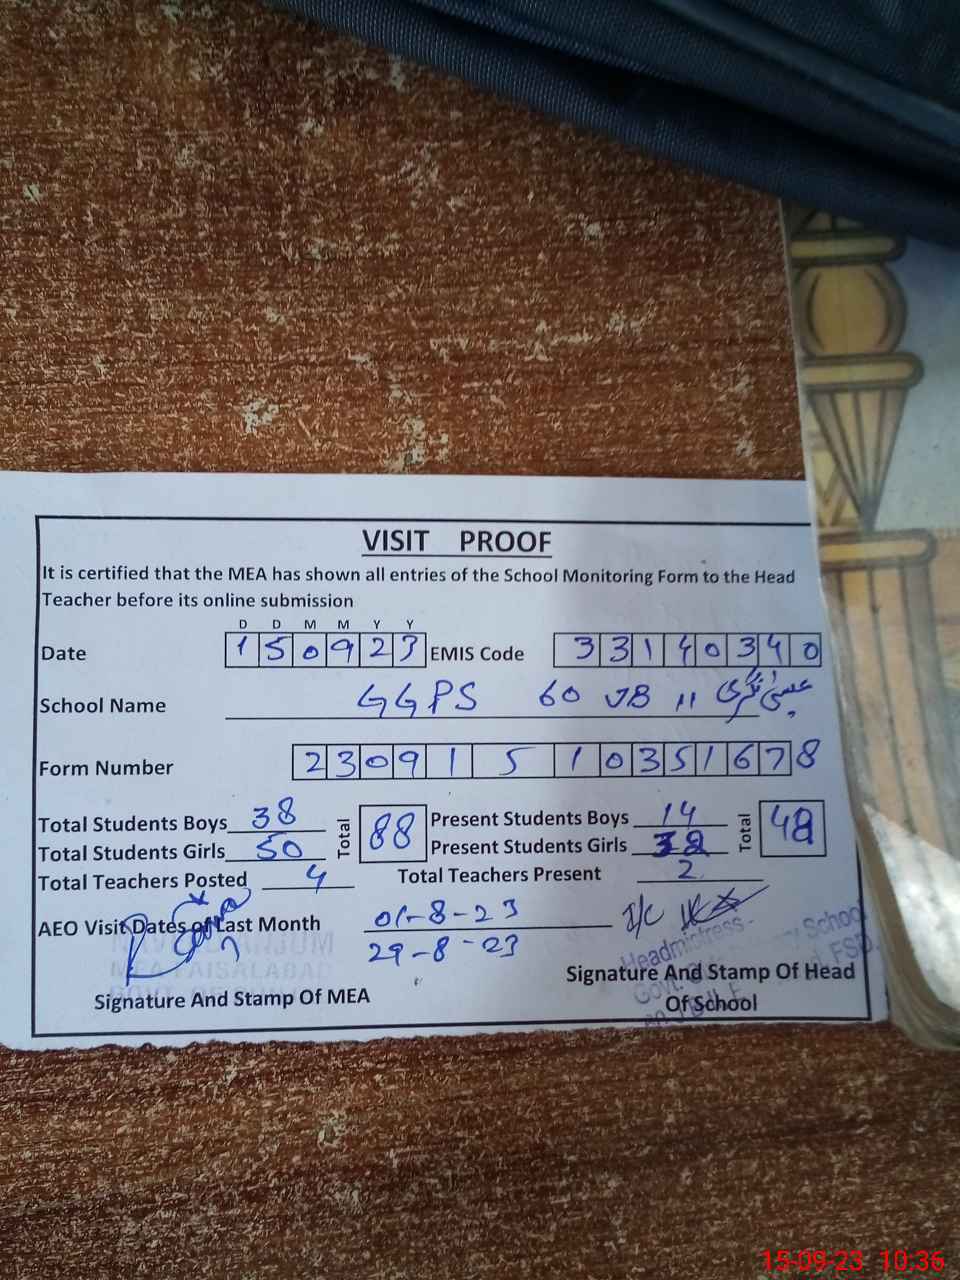 VISIT PROOF
It is certified that the MEA has shown all entries of the School Monitoring Form to the Head
Teacher before its online submission
D D M M Y Y
Date 1 5 0 9 2 3 EMIS Code 3 3 1 4 0 3 4 0
School Name GGPS 60 JB II عیسیٰ نگری
Form Number 2 3 0 9 1 5 1 0 3 5 1 6 7 8
Total Students Boys 38 Total 88 Present Students Boys 14 Total
Total Students Girls 50 Present Students Girls
Total Teachers Posted 4 Total Teachers Present 2
AEO Visit Dates of Last Month 01-8-23 I/C
29-8-23
Headmistress
Govt. School
FSD.
MEA FAISALABAD
Signature And Stamp Of MEA
Signature And Stamp Of Head
Of School
15-09-23 10:36